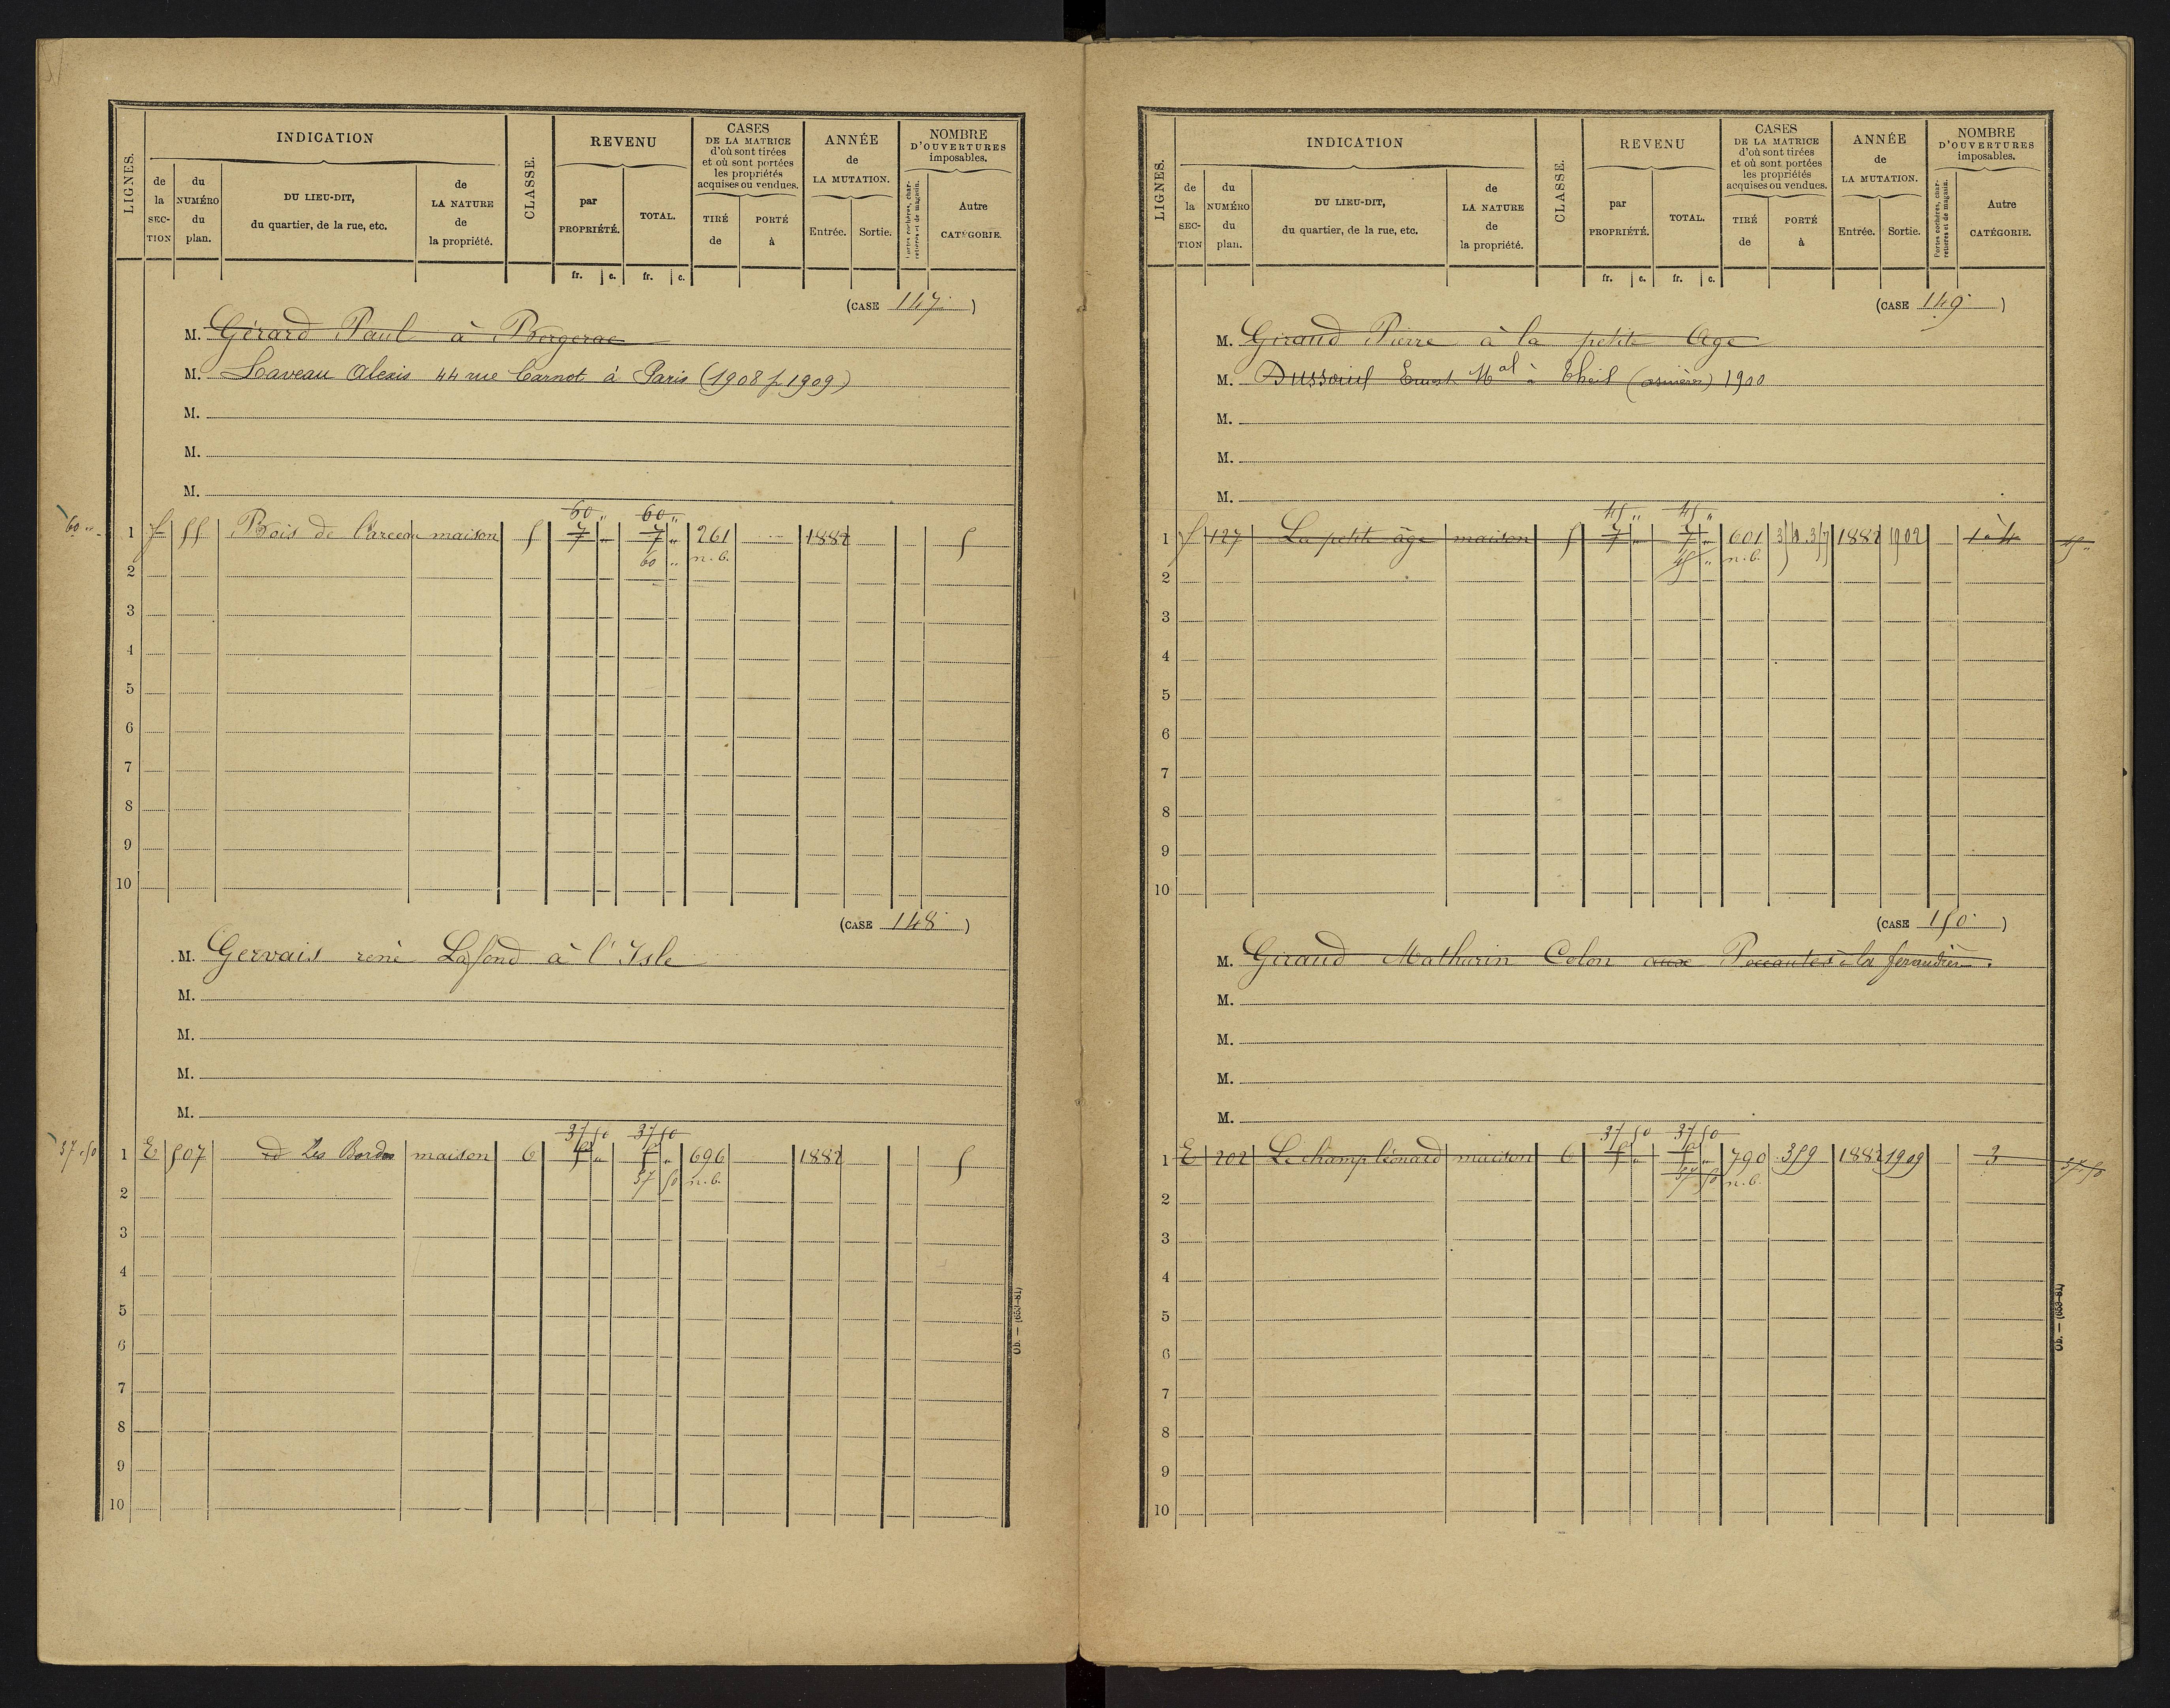 LIGNES.
INDICATION
de la SECTION
du NUMÉRO du plan.
DU LIEU-DIT, du quartier, de la rue, etc.
de LA NATURE de la propriété.
CLASSE.
REVENU
par PROPRIÉTÉ.
TOTAL.
CASES DE LA MATRICE d'où sont tirées et où sont portées les propriétés acquises ou vendues.
TIRÉ de
PORTÉ à
ANNÉE de LA MUTATION.
Entrée.
Sortie.
NOMBRE D'OUVERTURES imposables.
Portes cochères, charretières et de magasin.
Autre CATÉGORIE.
fr. c. fr. c.
(CASE 147)
M. Gérard Paul à Bergerac
M. Laveau Alexis 44 rue Carnot à Paris (1908 p 1909)
M.
M.
M.
60 „ 60 „
60 „ 1 f 55 Bois de l'arceau maison 5 7 „ 7 „ 261 1882 5
2 60 „ n.b.
3
4
5
6
7
8
9
10
(CASE 148)
M. Gervais rené Lafond à l'Isle
M.
M.
M.
M.
37 50 37 50
37 50 1 E 507 d Les Bordes maison 6 696 1882 5
2 37 50 n.b.
3
4
5
6
7
8
9
10
Ob. — (653-81)
LIGNES.
INDICATION
de la SECTION
du NUMÉRO du plan.
DU LIEU-DIT, du quartier, de la rue, etc.
de LA NATURE de la propriété.
CLASSE.
REVENU
par PROPRIÉTÉ.
TOTAL.
CASES DE LA MATRICE d'où sont tirées et où sont portées les propriétés acquises ou vendues.
TIRÉ de
PORTÉ à
ANNÉE de LA MUTATION.
Entrée.
Sortie.
NOMBRE D'OUVERTURES imposables.
Portes cochères, charretières et de magasin.
Autre CATÉGORIE.
fr. c. fr. c.
(CASE 149)
M. Giraud Pierre à la petite Age
M. Dussouil Ernest Mal à Theil (asnières) 1900
M.
M.
M.
45 „ 45 „
1 f 127 La petite âge maison 5 7 „ 7 „ 601 1882 1902 1 à 4 45 „
2 45 „ n.b.
3
4
5
6
7
8
9
10
(CASE 150)
M. Giraud Mathurin Colon aux à la
M.
M.
M.
M.
37 50 37 50
1 E 202 Le champ léonard maison 6 790 359 1882 1909 3 37 50
2 37 50 n.b.
3
4
5
6
7
8
9
10
Ob. — (653-81)